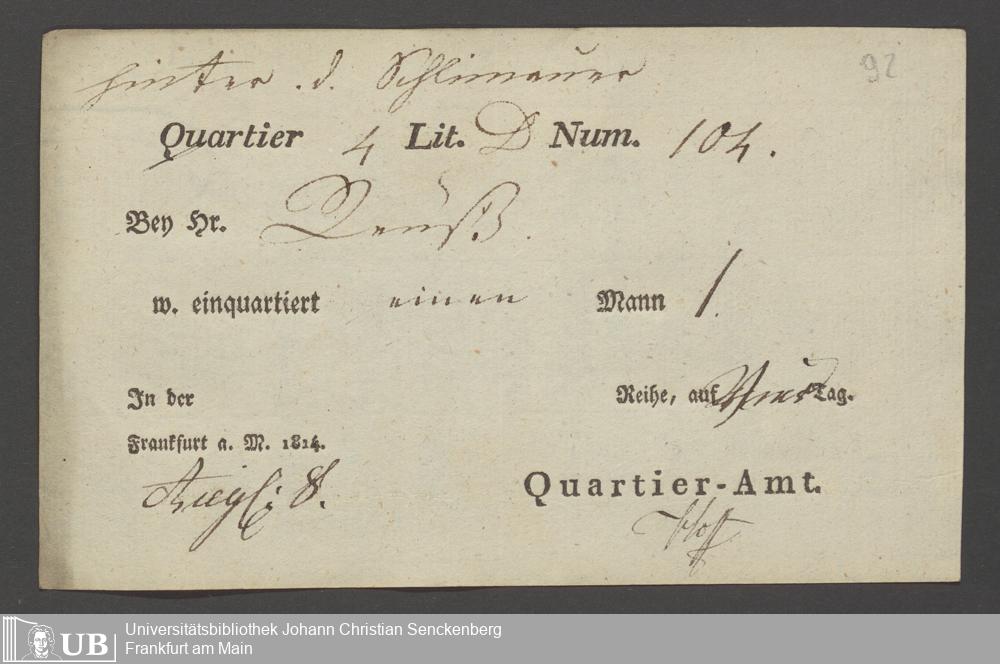 hinter .d. Schlimauer
92
Quartier 4 Lit. D Num. 104.
Bey Hr. Reuß.
w. einquartiert einen Mann 1.
In der Reihe, auf Vier Tag.
Frankfurt a. M. 1814.
Quartier-Amt.
UB
Universitätsbibliothek Johann Christian Senckenberg
Frankfurt am Main